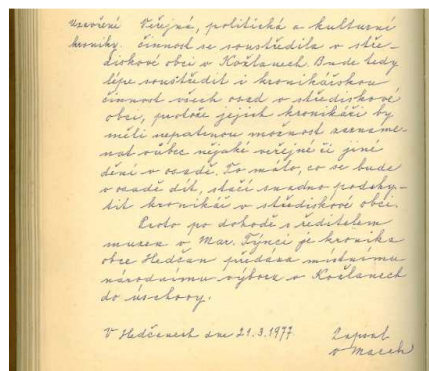 Uzavření Veřejná, politická a kulturní
kroniky. činnost se soustředila v stře-
diskové obci v Kožlanech. Bude tedy
lépe soustředit i kronikářskou
činnost všech osad v střediskové
obci, protože jejich kronikáři by
měli nepatrnou možnost zazname-
nat vůbec nějaké veřejné či jiné
dění v osadě. To málo, co se bude
v osadě dít, stačí snadno podchy-
tit kronikář v střediskové obci.
Proto po dohodě s ředitelem
muzea v Mar. Týnci je kronika
obce Hedčan předána místnímu
národnímu výboru v Kožlanech
do úschovy.
V Hedčanech dne 21.3.1977 Zapsal
Marek